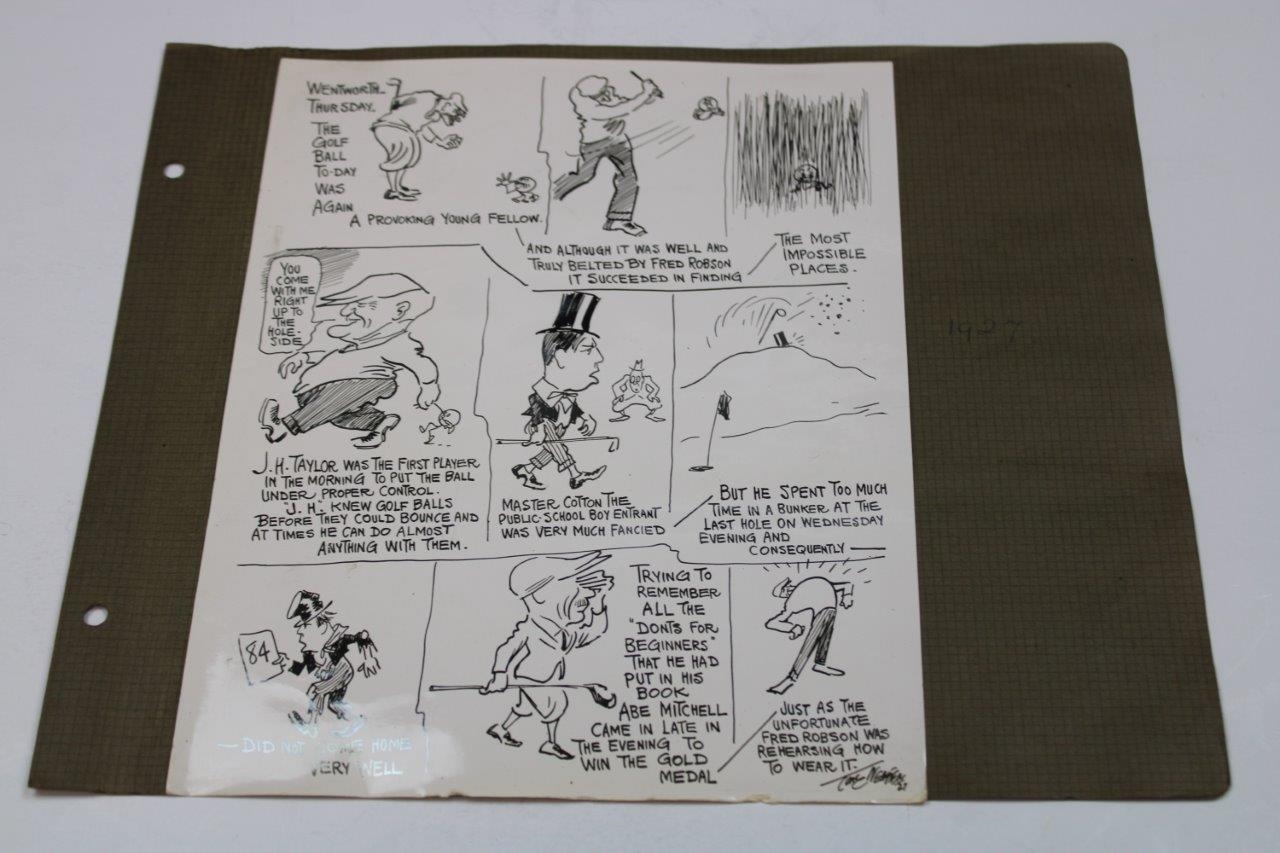 WENTWORTH_
THURSDAY.
THE
GOLF
BALL
TO-DAY
WAS
AGAIN
A PROVOKING YOUNG FELLOW.
AND ALTHOUGH IT WAS WELL AND
TRULY BELTED BY FRED ROBSON
IT SUCCEEDED IN FINDING
THE MOST
IMPOSSIBLE
PLACES.
YOU
COME
WITH ME
RIGHT
UP TO
THE
HOLE-
SIDE
J.H. TAYLOR WAS THE FIRST PLAYER
IN THE MORNING TO PUT THE BALL
UNDER PROPER CONTROL.
"J.H." KNEW GOLF BALLS
BEFORE THEY COULD BOUNCE AND
AT TIMES HE CAN DO ALMOST
ANYTHING WITH THEM.
MASTER COTTON THE
PUBLIC-SCHOOL BOY ENTRANT
WAS VERY MUCH FANCIED
BUT HE SPENT TOO MUCH
TIME IN A BUNKER AT THE
LAST HOLE ON WEDNESDAY
EVENING AND
CONSEQUENTLY —
84
— DID NOT COME HOME
VERY WELL
TRYING TO
REMEMBER
ALL THE
"DONTS FOR
BEGINNERS"
THAT HE HAD
PUT IN HIS
BOOK
ABE MITCHELL
CAME IN LATE IN
THE EVENING TO
WIN THE GOLD
MEDAL
JUST AS THE
UNFORTUNATE
FRED ROBSON WAS
REHEARSING HOW
TO WEAR IT.
27
1927